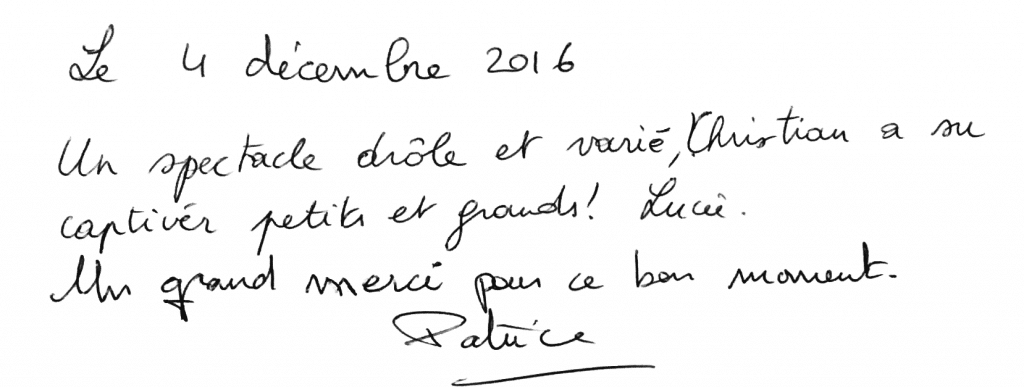 Le 4 décembre 2016
Un spectacle drôle et varié, Christian a su
captiver petits et grands! Lucie.
Un grand merci pour ce bon moment.
Patrice